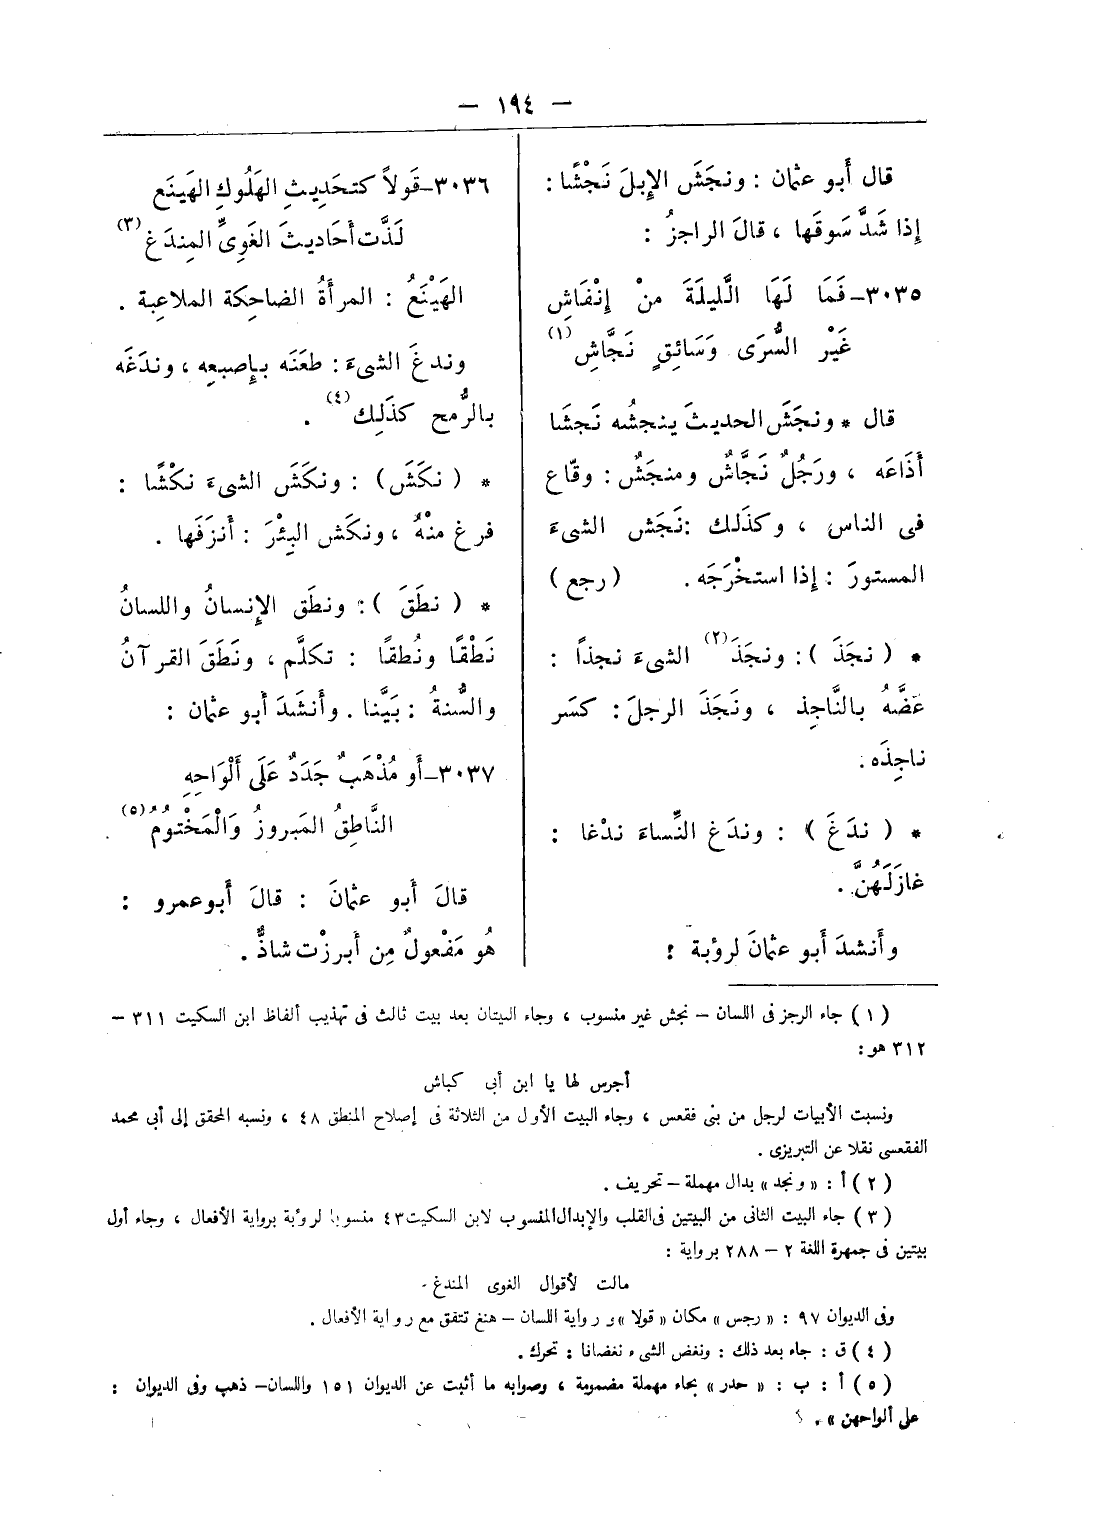 — ١٩٤ —
قال أَبو عثمان : ونجَش الإِبلَ نَجْشًا :
إذا شَدَّ سَوقَها ، قالَ الراجزُ :
٣٠٣٥–فَمَا لَهَا الَّليلَةَ منْ إِنْفَاشِ
غَيْر السُّرَى وَسَائِقٍ نَجَّاشِ (١)
قال * ونجَشَ الحديثَ ينجشُه نَجشَا
أذَاعَه ، ورَجُلٌ نَجَّاشٌ ومنجَشٌ : وقّاع
فى الناس ، وكذَلك : نَجَش الشىءَ
المستورَ : إذا استخْرَجَه . (رجع)
* ( نجَذَ ) : ونجَذَ (٢) الشىءَ نجذاً :
عَضَّهُ بالنَّاجِذ ، ونَجَذَ الرجلَ : كسَر
ناجِذَه .
* ( ندَغَ ) : وندَغ النِّساءَ ندْغا :
غازَلَهُنَّ .
وأَنشدَ أَبو عثمانَ لرؤبة :
٣٠٣٦–قَولاً كتحَدِيثِ الهَلُوكِ الهَينَع
لَذَّت أحَاديثَ الغَوِىِّ المِندَغ (٣)
الهَيْنَعُ : المرأَةُ الضاحِكة الملاعِبة .
وندغَ الشىءَ : طعَنَه بإِصبعِه ، وندَغَه
بالرُّمح كذَلِك (٤) .
* ( نكَشَ ) : ونكَشَ الشىءَ نكْشًا :
فرغ منْهُ ، ونكَش البِئْرَ : أَنزَفَها .
* ( نطَقَ ) : ونطَق الإِنسانُ واللسانُ
نَطْقًا ونُطقًا : تكلَّم ، ونَطَقَ القرآنُ
والسُّنةُ : بَيَّنا . وأَنشَدَ أبو عثمان :
٣٠٣٧–أَو مُذْهَبٌ جَدَدٌ عَلَى أَلْوَاحِهِ
النَّاطِقُ المَبروزُ وَالْمَخْتومُ (٥)
قالَ أَبو عثمانَ : قالَ أَبوعمرو :
هُو مَفْعولٌ مِن أَبرزْت شاذٌّ .
( ١ ) جاء الرجز فى اللسان – نجش غير منسوب ، وجاء البيتان بعد بيت ثالث فى تهذيب ألفاظ ابن السكيت ٣١١ –
٣١٢ هو :
أجرس لها يا ابن أبى كباش
ونسبت الأبيات لرجل من بنى فقعس ، وجاء البيت الأول من الثلاثة فى إصلاح المنطق ٤٨ ، ونسبه المحقق إلى أبى محمد
الفقعسى نقلا عن التبريزى .
( ٢ ) أ : « ونجد » بدال مهملة – تحريف .
( ٣ ) جاء البيت الثانى من البيتين فى القلب والإبدال المنسوب لابن السكيت ٤٣ منسوبا لرؤبة برواية الأفعال ، وجاء أول
بيتين فى جمهرة اللغة ٢ – ٢٨٨ برواية :
مالت لأقوال الغوى المندغ
وفى الديوان ٩٧ : « رجس » مكان « قولا » ورواية اللسان – هنغ تتفق مع رواية الأفعال .
( ٤ ) ق : جاء بعد ذلك : ونغض الشىء نغضانا : تحرك .
( ٥ ) أ : ب : « حدر » بحاء مهملة مضمومة ، وصوابه ما أثبت عن الديوان ١٥١ واللسان – ذهب وفى الديوان :
على ألواحهن » .